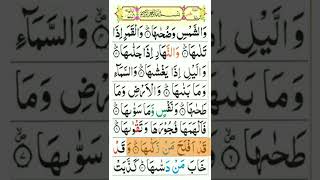 وَالشَّمْسِ وَضُحٰىهَا ۝ وَالْقَمَرِ اِذَا
تَلٰىهَا ۝ وَالنَّهَارِ اِذَا جَلّٰىهَا ۝
وَالَّيْلِ اِذَا يَغْشٰىهَا ۝ وَالسَّمَآءِ
وَمَا بَنٰىهَا ۝ وَالْاَرْضِ وَمَا
طَحٰىهَا ۝ وَنَفْسٍ وَّمَا سَوّٰىهَا ۝
فَاَلْهَمَهَا فُجُوْرَهَا وَتَقْوٰىهَا ۝
قَدْ اَفْلَحَ مَنْ زَكّٰىهَا ۝ وَقَدْ
خَابَ مَنْ دَسّٰىهَا ۝ كَذَّبَتْ